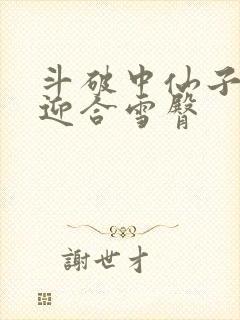 斗破中仙子
迎合雪臀
謝世才